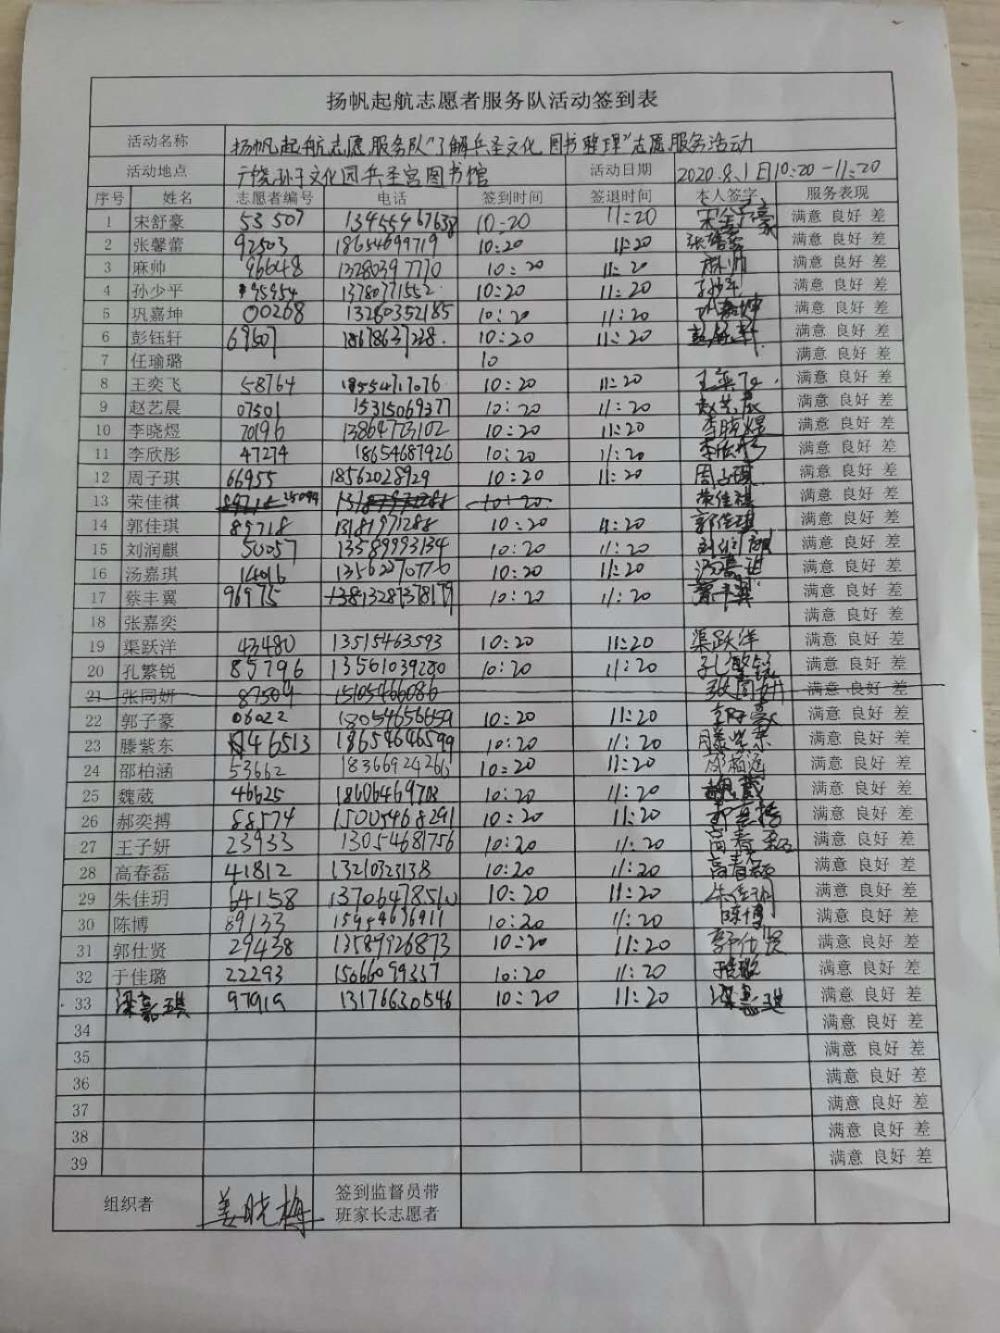 扬帆起航志愿者服务队活动签到表
活动名称 扬帆起航志愿服务队"了解兵圣文化 图书整理"志愿服务活动
活动地点 广饶孙子文化园兵圣宫图书馆 活动日期 2020.8.1日10:20-11:20
序号 姓名 志愿者编号 电话 签到时间 签退时间 本人签字 服务表现
1 宋舒豪 53507 13455467638 10:20 11:20 满意 良好 差
2 张馨蕾 92503 18654699719 10:20 11:20 满意 良好 差
3 麻帅 96648 13280397770 10:20 11:20 麻帅 满意 良好 差
4 孙少平 95954 13780771552 10:20 11:20 满意 良好 差
5 巩嘉坤 00268 13280352185 10:20 11:20 满意 良好 差
6 彭钰轩 69507 18678637228 10:20 11:20 彭钰轩 满意 良好 差
7 任瑜璐 10 满意 良好 差
8 王奕飞 58764 18554717076 10:20 11:20 王奕飞 满意 良好 差
9 赵艺晨 07501 15315069377 10:20 11:20 赵艺晨 满意 良好 差
10 李晓煜 70196 13864773102 10:20 11:20 李晓煜 满意 良好 差
11 李欣彤 47274 18654687926 10:20 11:20 李欣彤 满意 良好 差
12 周子琪 66955 18562028929 10:20 11:20 周子琪 满意 良好 差
13 荣佳祺 10:20 荣佳祺 满意 良好 差
14 郭佳琪 89718 13181971288 10:20 11:20 郭佳琪 满意 良好 差
15 刘润麒 50057 13589993134 10:20 11:20 刘润麒 满意 良好 差
16 汤嘉琪 14016 13562070776 10:20 11:20 汤嘉琪 满意 良好 差
17 蔡丰翼 96975 10:20 11:20 蔡丰翼 满意 良好 差
18 张嘉奕 满意 良好 差
19 渠跃洋 43480 13515463593 10:20 11:20 渠跃洋 满意 良好 差
20 孔繁锐 85796 13561039280 10:20 11:20 孔繁锐 满意 良好 差
21 张同妍 87509 15105466086 张同妍 满意 良好 差
22 郭子豪 06022 18054656659 10:20 11:20 郭子豪 满意 良好 差
23 滕紫东 46513 18654646599 10:20 11:20 滕紫东 满意 良好 差
24 邵柏涵 53662 18366924266 10:20 11:20 邵柏涵 满意 良好 差
25 魏葳 46625 18606469708 10:20 11:20 魏葳 满意 良好 差
26 郝奕搏 88574 15005468291 10:20 11:20 满意 良好 差
27 王子妍 23933 13054681756 10:20 11:20 满意 良好 差
28 高春磊 41812 13210323138 10:20 11:20 高春磊 满意 良好 差
29 朱佳玥 64158 13706478510 10:20 11:20 朱佳玥 满意 良好 差
30 陈博 89133 10:20 11:20 陈博 满意 良好 差
31 郭仕贤 29438 13589926873 10:20 11:20 郭仕贤 满意 良好 差
32 于佳璐 22293 15066099337 10:20 11:20 满意 良好 差
33 梁嘉琪 97919 13176630546 10:20 11:20 梁嘉琪 满意 良好 差
34 满意 良好 差
35 满意 良好 差
36 满意 良好 差
37 满意 良好 差
38 满意 良好 差
39 满意 良好 差
组织者 姜晓梅 签到监督员带
班家长志愿者